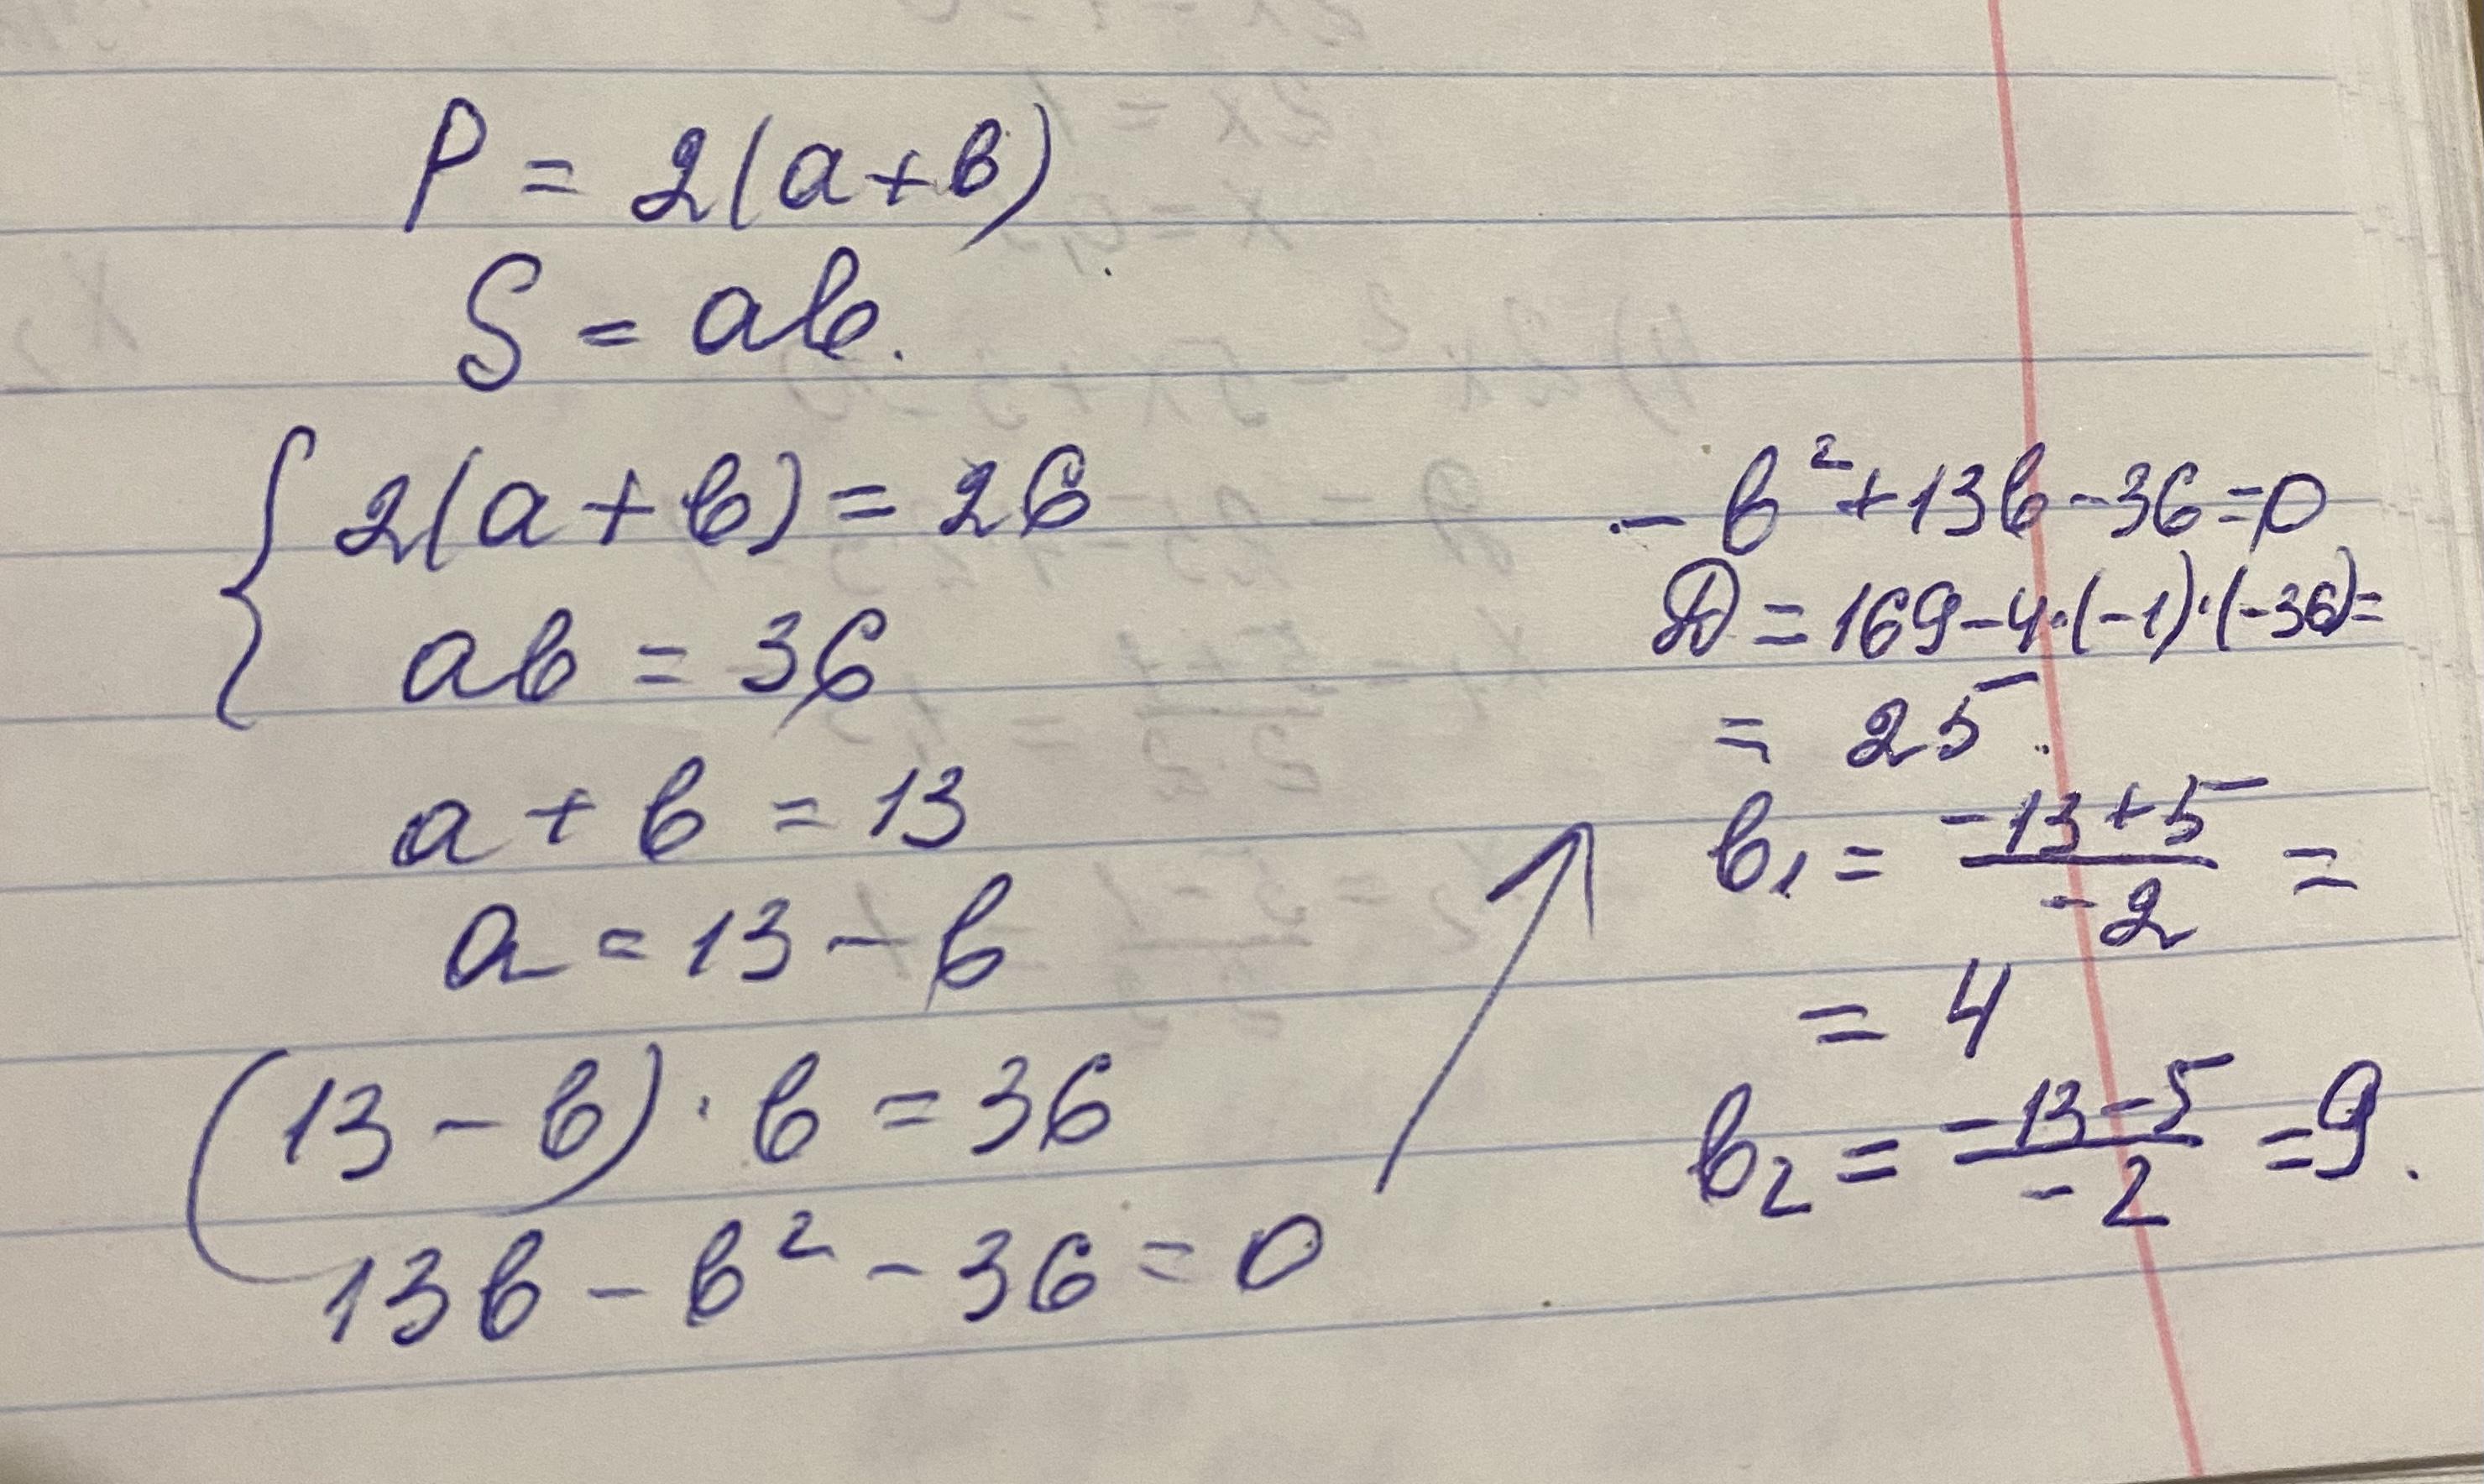 P = 2(a+b)
S = ab.
{ 2(a+b) = 26
ab = 36
a + b = 13
a = 13 - b
(13 - b) · b = 36
13b - b² - 36 = 0
- b² + 13b - 36 = 0
D = 169 - 4 · (-1) · (-36) =
= 25.
b₁ = (-13 + 5)/(-2) =
= 4
b₂ = (-13 - 5)/(-2) = 9.